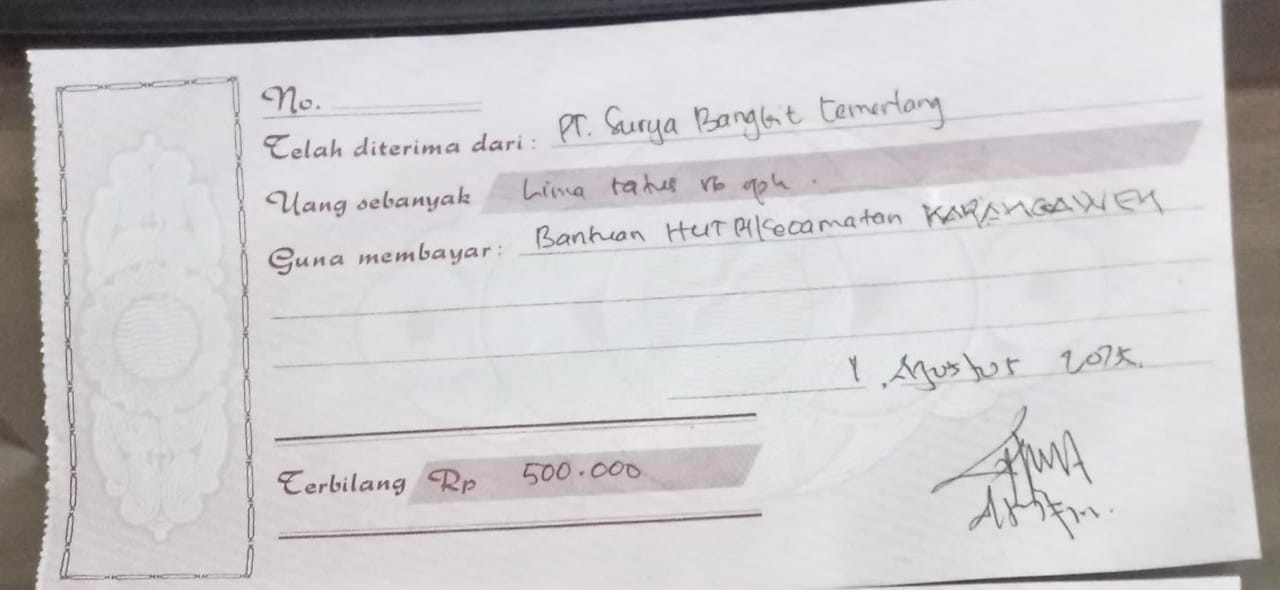 No.
Telah diterima dari : PT. Surya Bangkit Cemerlang
Uang sebanyak Lima ratus rb rph .
Guna membayar : Bantuan HUT RI Kecamatan KARANGAWEN
1 , Agustus 2025.
Terbilang Rp 500.000